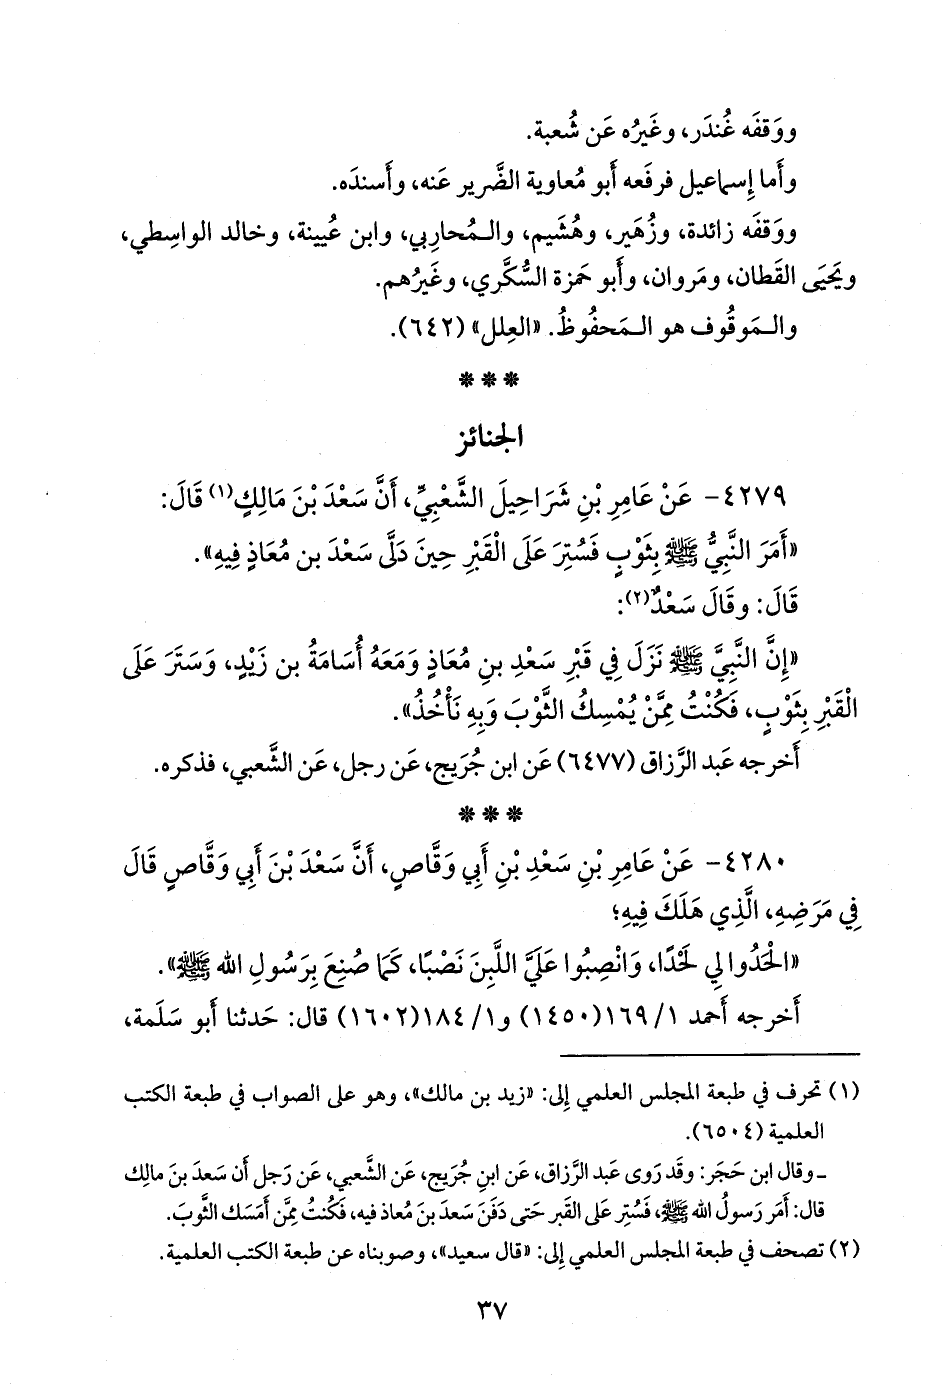 ووَقفَه غُندَر، وغَيرُه عَن شُعبة.
وأَما إِسماعيل فرفَعه أَبو مُعاوية الضَّرير عَنه، وأَسندَه.
ووَقفَه زائدة، وزُهَير، وهُشَيم، والـمُحارِبي، وابن عُيينة، وخالد الواسِطي،
ويَحيَى القَطان، ومَروان، وأَبو حَمزة السُّكَّري، وغَيرُهم.
والـمَوقُوف هو الـمَحفُوظُ. «العِلل» (٦٤٢).
***
الجنائز
٤٢٧٩- عَنْ عَامِرِ بْنِ شَرَاحِيلَ الشَّعْبِيِّ، أَنَّ سَعْدَ بْنَ مَالِكٍ(١) قَالَ:
«أَمَرَ النَّبِيُّ ﷺ بِثَوْبٍ فَسُتِرَ عَلَى الْقَبْرِ حِينَ دَلَّى سَعْدَ بن مُعَاذٍ فِيهِ».
قَالَ: وقَالَ سَعْدٌ(٢):
«إِنَّ النَّبِيَّ ﷺ نَزَلَ فِي قَبْرِ سَعْدِ بنِ مُعَاذٍ وَمَعَهُ أُسَامَةُ بن زَيْدٍ، وَسَتَرَ عَلَى
الْقَبْرِ بِثَوْبٍ، فَكُنْتُ مِمَّنْ يُمْسِكُ الثَّوْبَ وَبِهِ نَأْخُذُ».
أَخرجه عَبد الرَّزاق (٦٤٧٧) عَن ابن جُرَيج، عَن رجل، عَن الشَّعبي، فذكره.
***
٤٢٨٠- عَنْ عَامِرِ بْنِ سَعْدِ بْنِ أَبِي وَقَّاصٍ، أَنَّ سَعْدَ بْنَ أَبِي وَقَّاصٍ قَالَ
فِي مَرَضِهِ، الَّذِي هَلَكَ فِيهِ؛
«الْحَدُوا لِي لَحْدًا، وَانْصِبُوا عَلَيَّ اللَّبِنَ نَصْبًا، كَمَا صُنِعَ بِرَسُولِ الله ﷺ».
أَخرجه أَحمد ١/ ١٦٩(١٤٥٠) و١/ ١٨٤(١٦٠٢) قال: حَدثنا أَبو سَلَمة،
(١) تحرف في طبعة المجلس العلمي إِلى: «زيد بن مالك»، وهو على الصواب في طبعة الكتب
العلمية (٦٥٠٤).
ـ وقال ابن حَجَر: وقد رَوى عَبد الرَّزاق، عَن ابنِ جُرَيج، عَن الشَّعبي، عَن رَجل أَن سَعدَ بنَ مالِك
قال: أَمَر رَسولُ الله ﷺ، فَسُتِر عَلى القَبر حَتى دَفَنَ سَعدَ بنَ مُعاذ فيه، فَكُنتُ مِمَّن أَمسَك الثَّوبَ.
(٢) تصحف في طبعة المجلس العلمي إِلى: «قال سعيد»، وصوبناه عن طبعة الكتب العلمية.
٣٧